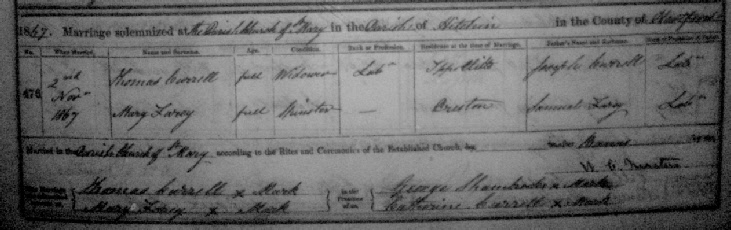 1867. Marriage solemnized at the Parish Church of St Mary in the Parish of Hitchin in the County of
No. When Married. Name and Surname. Age. Condition. Rank or Profession. Residence at the time of Marriage. Father's Name and Surname. Rank or Profession of Father.
476 2nd Nov 1867 Thomas Currell full Widower Labr Ippollitts Joseph Currell Labr
Mary full Spinster — Preston Samuel Labr
Married in the Parish Church of St Mary according to the Rites and Ceremonies of the Established Church, by after Banns by me,
This Marriage was solemnized between us, Thomas Currell x Mark in the Presence of us, George x Mark
Mary x Mark Catherine Currell x Mark